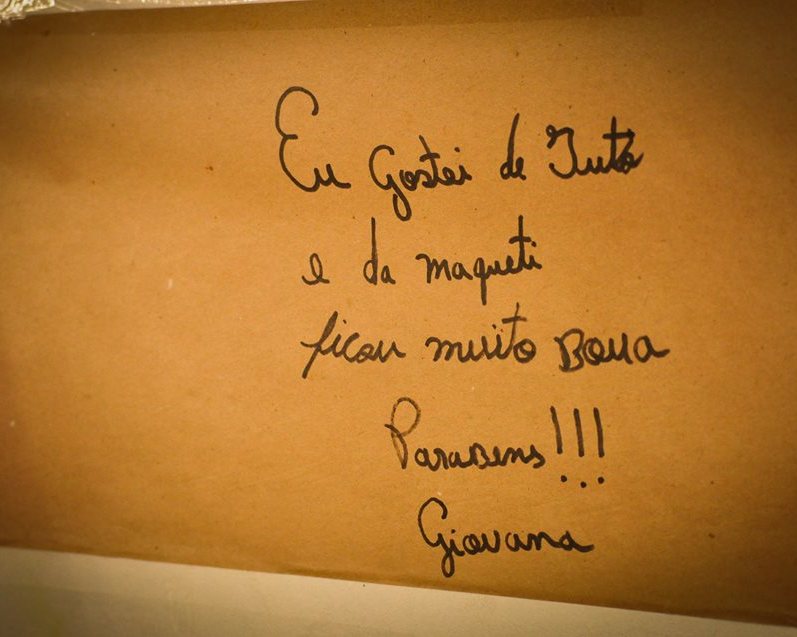 Eu Gostei de Tuto
e da maqueti
ficou muito Boua
Parabens!!!
Giovana